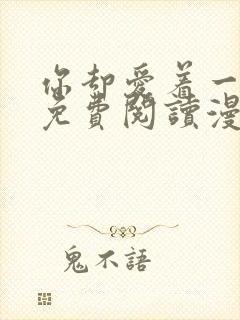 你却愛着一
免費閱讀漫
鬼不語